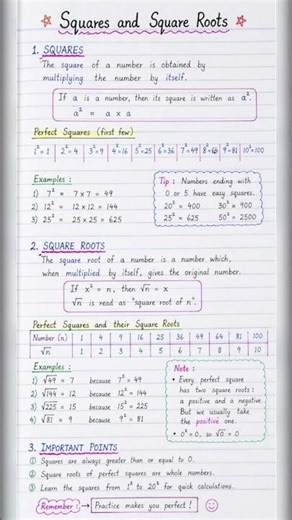 Squares and Square Roots
1. SQUARES
The square of a number is obtained by
multiplying the number by itself.
If a is a number, then its square is written as a².
a² = a x a
Perfect Squares (first few)
1²=1 | 2²=4 | 3²=9 | 4²=16 | 5²=25 | 6²=36 | 7²=49 | 8²=64 | 9²=81 | 10²=100
Examples :
1) 7² = 7×7 = 49
2) 12² = 12 × 12 = 144
3) 25² = 25 x 25 = 625
Tip : Numbers ending with
0 or 5 have easy squares.
20² = 400 30² = 900
25² = 625 50² = 2500
2. SQUARE ROOTS
The square root of a number is a number which,
when multiplied by itself, gives the original number.
If x² = n, then √n = x
√n is read as "square root of n".
Perfect Squares and their Square Roots
Number (n) | 1 | 4 | 9 | 16 | 25 | 36 | 49 | 64 | 81 | 100
√n | 1 | 2 | 3 | 4 | 5 | 6 | 7 | 8 | 9 | 10
Examples :
1) √49 = 7 because 7² = 49
2) √144 = 12 because 12² = 144
3) √225 = 15 because 15² = 225
4) √81 = 9 because 9² = 81
Note :
• Every perfect square
has two square roots :
a positive and a negative.
But we usually take
the positive one.
• 0² = 0, so √0 = 0
3. IMPORTANT POINTS
① Squares are always greater than or equal to 0.
② Square roots of perfect squares are whole numbers.
③ Learn the squares from 1² to 20² for quick calculations.
Remember : → Practice makes you perfect !